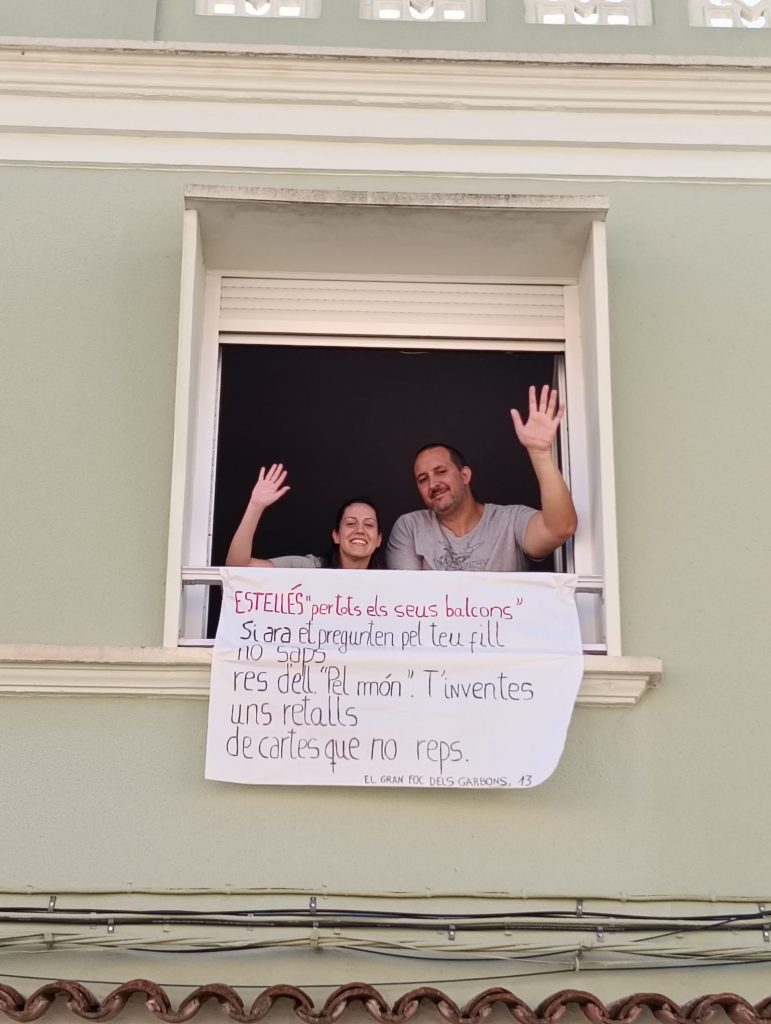 ESTELLÉS "per tots els seus balcons"
Si ara et pregunten pel teu fill
no saps
res d'ell. "Pel món". T'inventes
uns retalls
de cartes que no reps.
EL GRAN FOC DELS GARBONS, 13